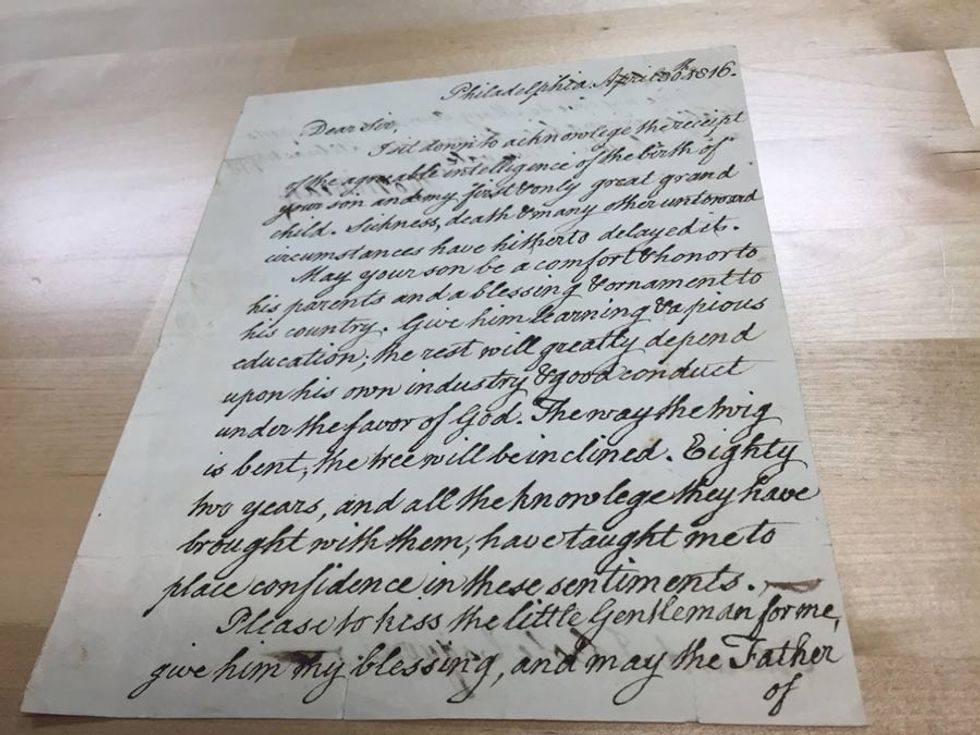 Philadelphia April 30th 1816.
Dear Sir,
I sit down to acknowlege the receipt
of the agreable intelligence of the birth of
your son and my first & only great grand
child. Sickness, death & many other untoward
circumstances have hitherto delayed it.
May your son be a comfort & honor to
his parents and a blessing & ornament to
his country. Give him learning & a pious
education; the rest will greatly depend
upon his own industry & good conduct
under the favor of God. The way the twig
is bent, the tree will be inclined. Eighty
two years, and all the knowlege they have
brought with them, have taught me to
place confidence in these sentiments.
Please to kiss the little Gentleman for me,
give him my blessing, and may the Father
of